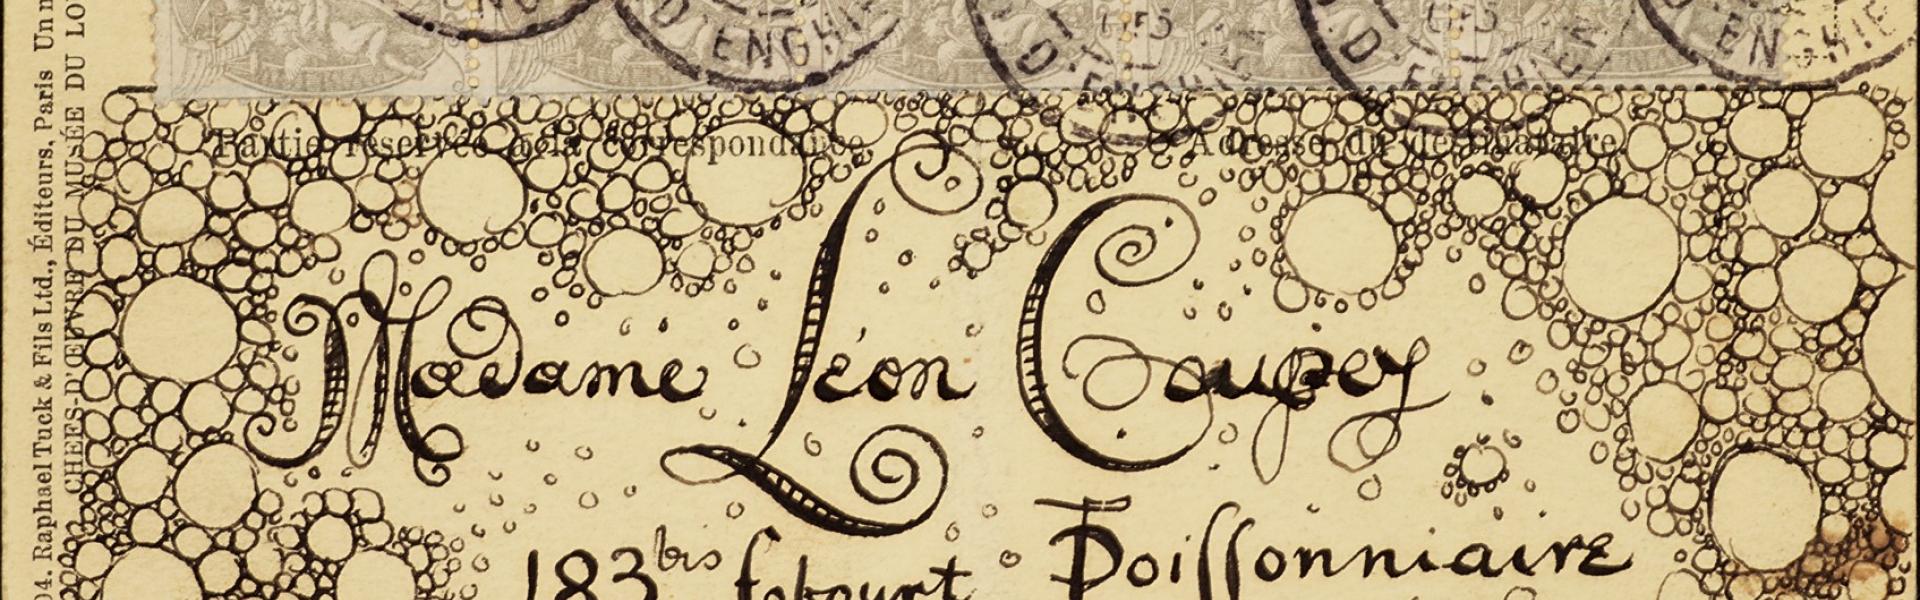 D'ENGHIEN
D'ENGHIEN
D'ENGHIEN
D'ENGHIEN
ENGHIEN
Partie réservée à la correspondance
Adresse du destinataire
Madame Léon Coupey
183bis fbourt Poissonniaire
04. Raphael Tuck & Fils Ltd., Éditeurs, Paris
CHEFS-D'ŒUVRE DU MUSÉE DU